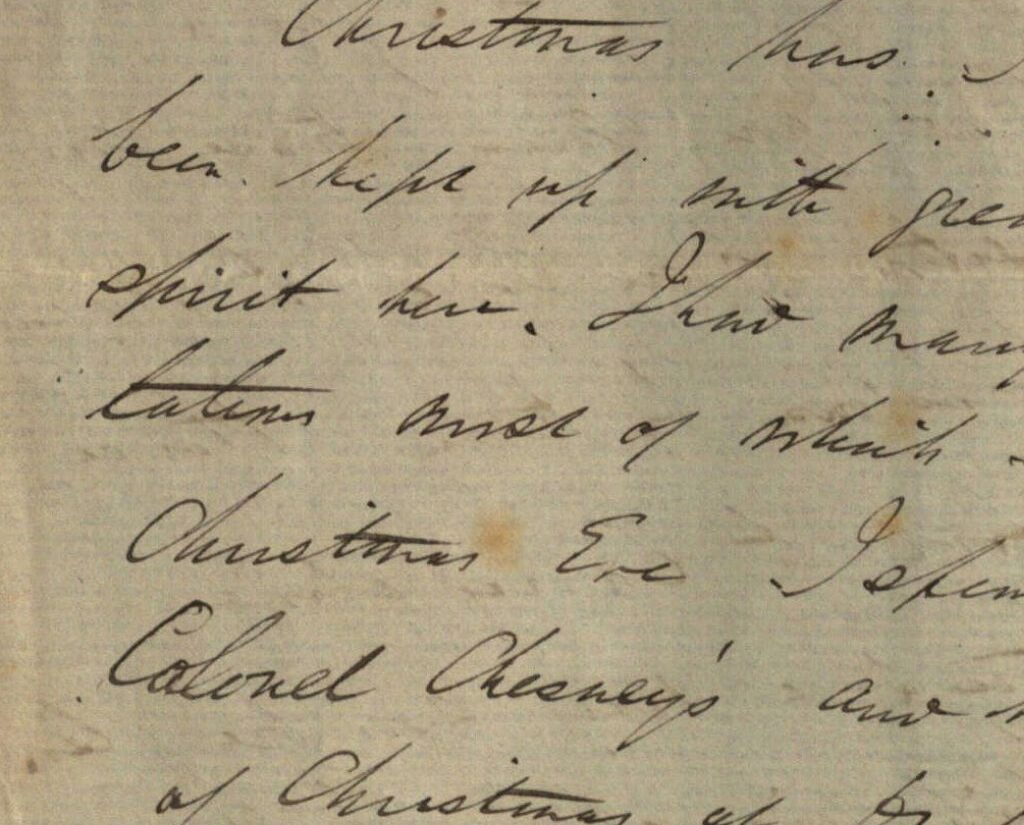 Christmas has
been kept up with
spirit here. I have many
tations most of which
Christmas Eve I
Colonel Chesney's and
of Christmas at